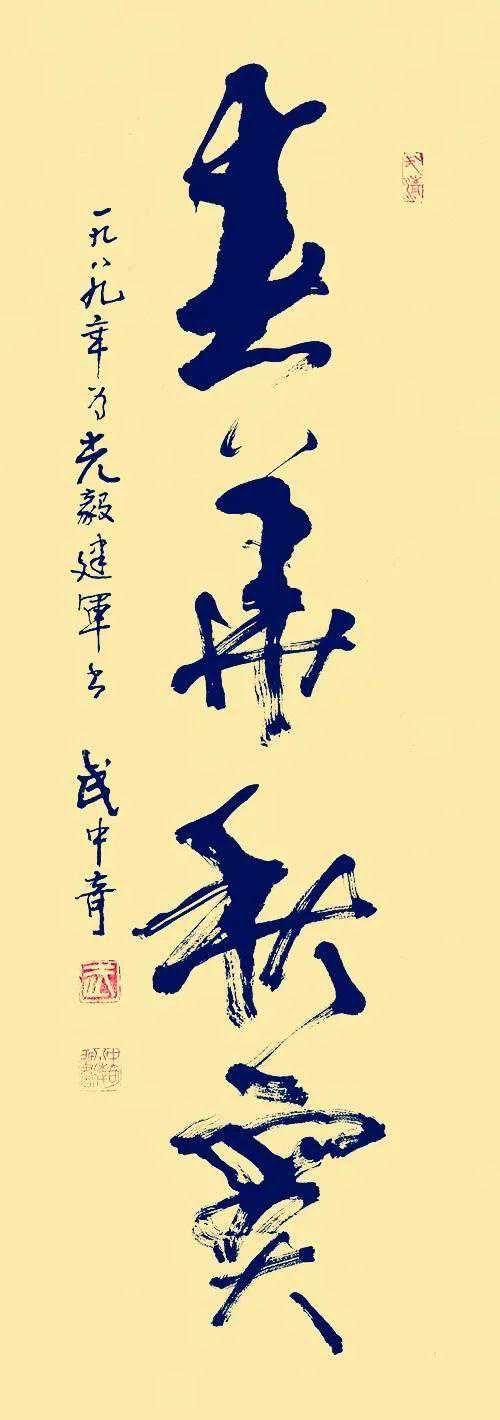 春华秋实
一九八九年为光毅建军书
武中奇
武